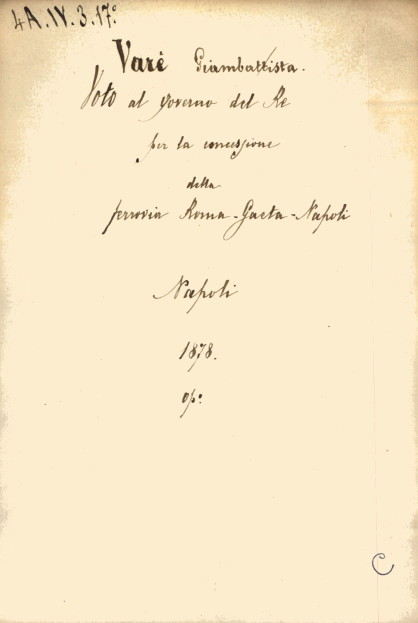 4A.IV.3.17.º
Varè Giambattista.
Voto al governo del Re
per la concessione
della
ferrovia Roma-Gaeta-Napoli
Napoli
1878.
op.º
C